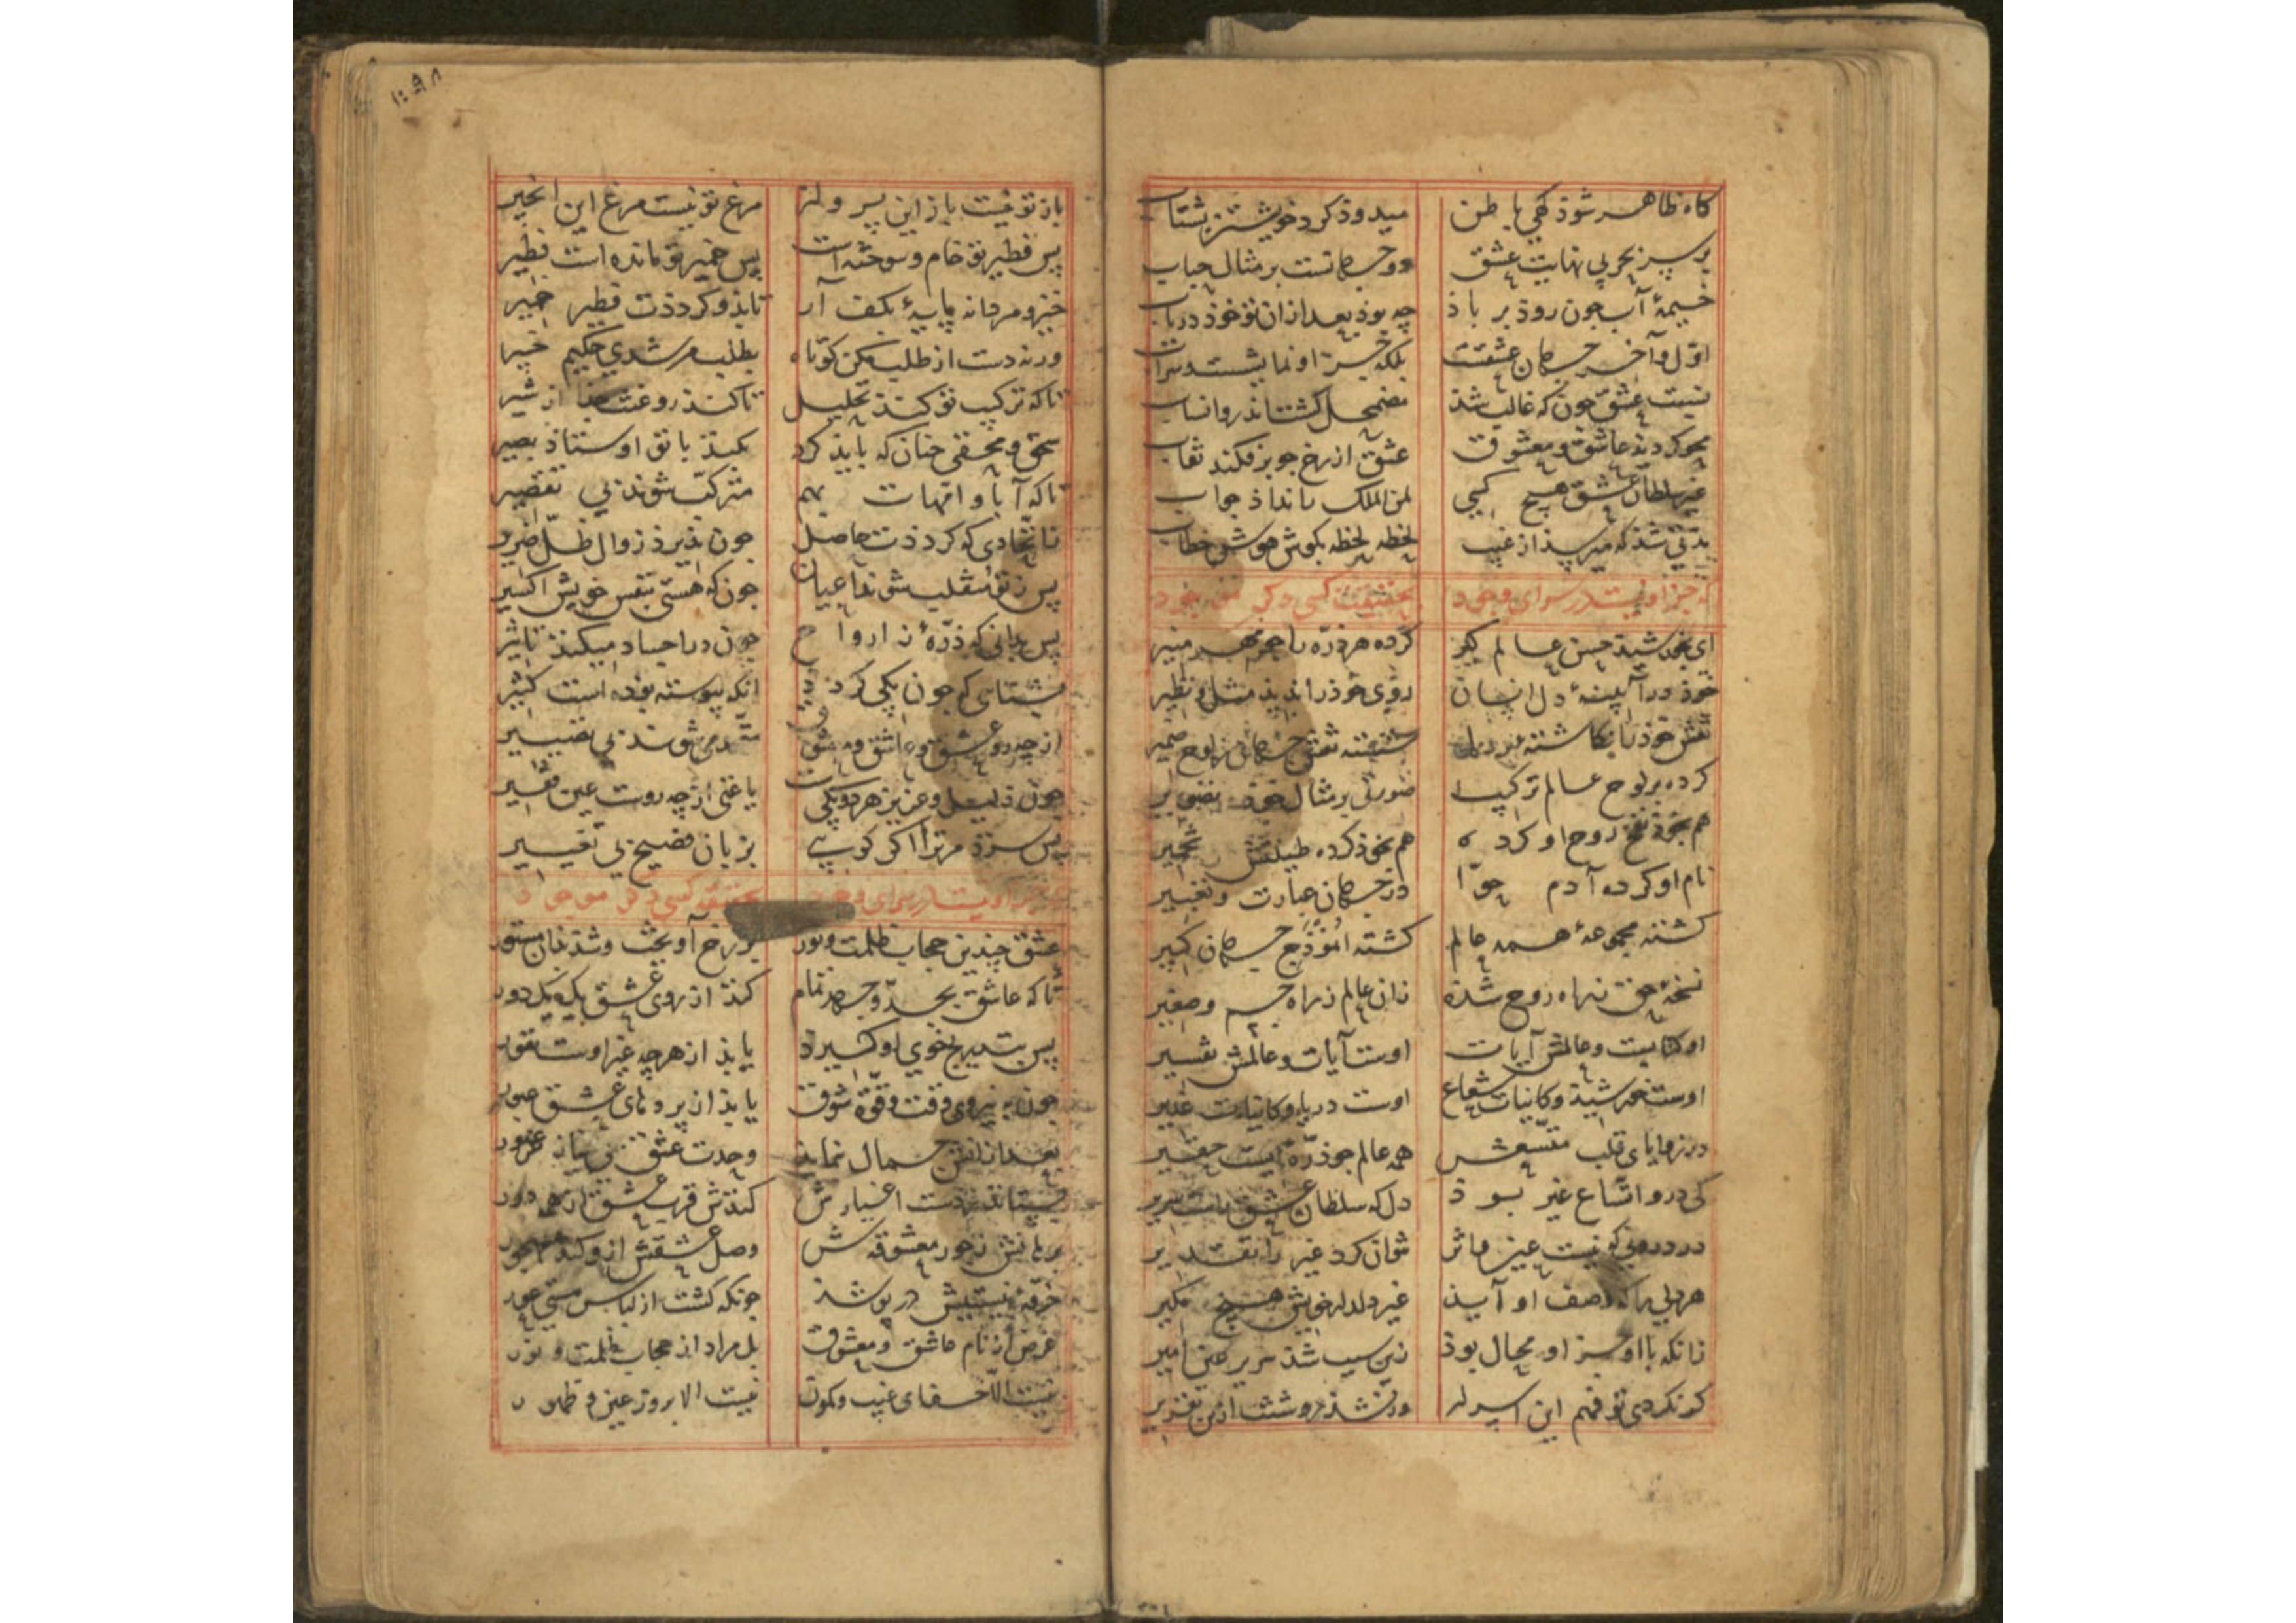 كاه ظاهر شوذ كهی باطن میدوذ كرد خویشتن بشتاب
بر سر بحر بی نهایت عشق دو جهانست بر مثال حباب
خیمهٔ آب چون روذ بر باذ چه بوذ بعد از ان تو خوذ دریاب
اوّل و آخر جهان عشقست بلكه جز او نمایشست و سراب
نسبت عشق چون كه غالب شذ مضمحل كشت اندرو انساب
محو كردند عاشق و معشوق عشق از رخ چو بر فكند نقاب
غیر سلطان عشق هیچ كسی لمن الملك را نداذ جواب
مدّتی شذ كه میرسذ از غیب لحظه لحظه بكوش هوش خطاب
كه جز او نیست در سرای وجود بحقیقت كسی دكر موجود
ای بخوذ كشیده حسن عالم كیر كرده هر ذرّه را چو مهر منیر
خوذ در آیینهٔ دل انسان روی خوذ را ندید مثل و نظیر
نقش خوذ را نكاشته نقش جهان ز لوح ضمیر
كرده بر لوح عالم تركیب صورتی بر مثال خوذ تصویر
هم بخوذ نفخ روح او كرده هم بخوذ كرده طینتش تخمیر
نام او كرده آدم حوّا در جهان عبارت و تعبیر
كشته مجموعهٔ همه عالم كشته انموذج جهان كبیر
نسخهٔ حق ز راه روح شذه زان عالم ز راه جسم و صغیر
او كتابست و عالمش آیات اوست آیات و عالمش تفسیر
اوست خورشیذ و كاینات شعاع اوست دریا و كاینات غدیر
در زوایای قلب متّسعش همه عالم چو ذرّه ایست حقیر
كی درو اتّساع غیر بوذ دل كه سلطان عشق راست سریر
در درونی كه نیست غیر مآثر نتوان كرد غیر را تقدیر
هر دلی را كه وصف او آیذ غیر دلدار خویش هیچ مكیر
زانكه با او جز او محال بوذ زین سبب شذ سریر عین امیر
كر نكردی تو فهم این اسرار ور نشذ روشنت ازین تقریر
باز تو نیست باز این پرواز مرغ تو نیست مرغ این انجیر
پس فطیر تو خام و سوخته است پس خمیر تو مانده است فطیر
خیز و مردانه پایهٔ بكف آر تا بذو كرددت فطیر خمیر
ورنه دست از طلب مكن كوتاه بطلب مرشدی حكیم خبیر
تا كه تركیب تو كنذ تحلیل تا كنذ روغنت جذا از شیر
سحق و محقی چنان كه بایذ كرد بكنذ با تو اوستاذ بصیر
تا كه آبا و امّهات بهم متركّب شوند بی تقصیر
تا نهادی كه كرددت حاصل چون پذیرذ زوال ظلّ ضریر
پس ز تو منقلب شود اعیان چون كه هستی بنفس خویش اكسیر
پس بدانی كه ذرّهٔ ز ارواح چون در اجساد میكنذ تاثیر
بشناسی كه چون یكی كردد انكه پیوسته بوذه است كثیر
از چه رو عشق و عاشق و معشوق متّحد میشوند بی تغییر
چون ذلیل و عزیز هر دو یكیست یا غنی از چه روست عین فقیر
پس سزذ مر ترا اكر كویی بزبان فصیح بی تفسیر
كه جز او نیست در سرای وجود بحقیقت كسی دكر موجود
عشق چندین حجاب ظلمت و نور بر رخ آویخت و شذ بذان مستور
تا كه عاشق بجدّ و جهد تمام كنذ از روی عشق یك یك دور
پس بتدریج خوی او كیرد یابذ از هر چه غیر اوست نفور
چون بنیروی وقت و قوّة شوق یابذ از پردهای عشق عبور
بعد از انش جمال نمایذ وحدت عشق بی نیاز غرور
بستاند ز دست اغیارش كنذش قرب عشق از همه دور
برهانش ز جور معشوقش وصل عشقش ازو كند مهجور
خرقهٔ نیستیش در پوشذ چونكه كشت از لباس هستی عور
غرض از نام عاشق و معشوق بل مراد از حجاب ظلمت و نور
نیست الا خفای غیب و كمون نیست الا بروز عین و ظهور